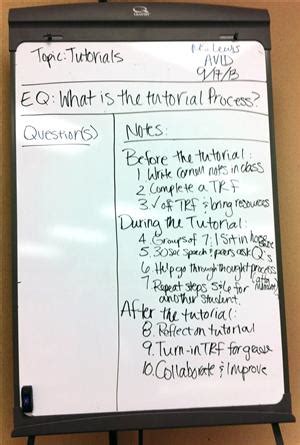 Topic: Tutorials
AVID
9/17/13
EQ: What is the tutorial Process?
Question(s)
Notes:
Before the tutorial:
1. Write cornell notes in class
2. Complete a TRF
3. ✓ off TRF & bring resources
During the Tutorial:
4. Groups of 7; 1 sit in
5. 30 sec speech & peers ask Q's
6. Help go through thought process
7. Repeat steps 5&6 for
another student.
After the tutorial:
8. Reflect on tutorial
9. Turn-in TRF for grade
10. Collaborate & Improve